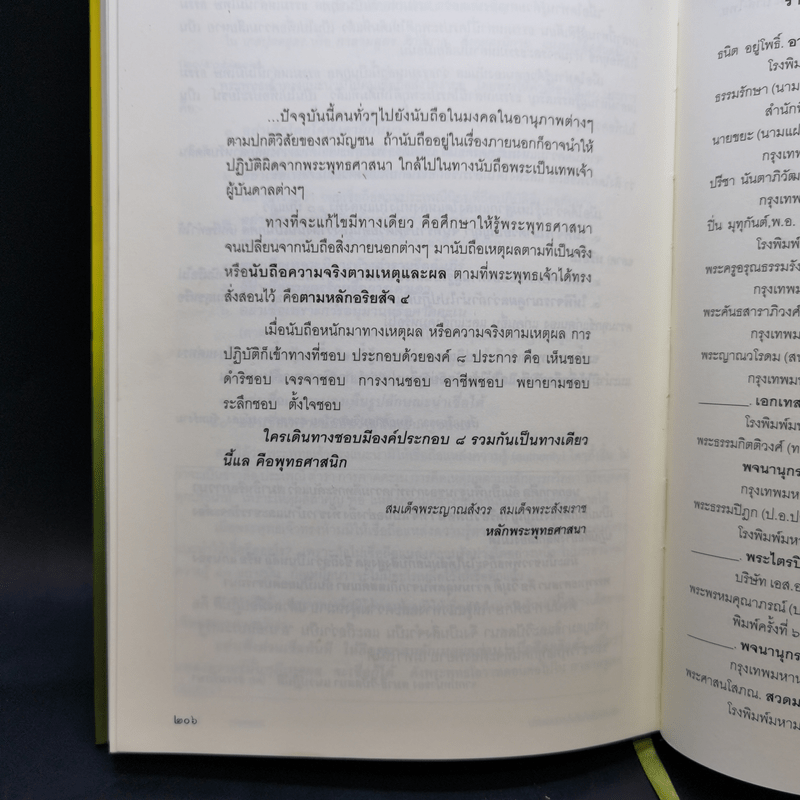 ...ปัจจุบันนี้คนทั่วๆไปยังนับถือในมงคลในอานุภาพต่างๆ
ตามปกติวิสัยของสามัญชน ถ้านับถืออยู่ในเรื่องภายนอกก็อาจนำให้
ปฏิบัติผิดจากพระพุทธศาสนา ใกล้ไปในทางนับถือพระเป็นเทพเจ้า
ผู้บันดาลต่างๆ
ทางที่จะแก้ไขมีทางเดียว คือศึกษาให้รู้พระพุทธศาสนา
จนเปลี่ยนจากนับถือสิ่งภายนอกต่างๆ มานับถือเหตุผลตามที่เป็นจริง
หรือนับถือความจริงตามเหตุและผล ตามที่พระพุทธเจ้าได้ทรง
สั่งสอนไว้ คือตามหลักอริยสัจ ๔
เมื่อนับถือหนักมาทางเหตุผล หรือความจริงตามเหตุผล การ
ปฏิบัติก็เข้าทางที่ชอบ ประกอบด้วยองค์ ๘ ประการ คือ เห็นชอบ
ดำริชอบ เจรจาชอบ การงานชอบ อาชีพชอบ พยายามชอบ
ระลึกชอบ ตั้งใจชอบ
ใครเดินทางชอบมีองค์ประกอบ ๘ รวมกันเป็นทางเดียว
นี้แล คือพุทธศาสนิก
สมเด็จพระญาณสังวร สมเด็จพระสังฆราช
หลักพระพุทธศาสนา
๒๐๖
ธนิต อยู่โพธิ์.
โรงพิม
ธรรมรักษา (นาม
สำนัก
นายขยะ (นามแฝ
กรุงเท
ปรีชา นันตาภิวัฒ
กรุงเท
ปิ่น มุทุกันต์,พ.อ.
โรงพิม
พระครูอรุณธรรมรัง
กรุงเทพ
พระคันธสาราภิวงศ์
กรุงเทพม
พระญาณวโรดม (สน
กรุงเทพม
_______. เอกเทส
โรงพิมพ์ม
พระธรรมกิตติวงศ์ (ท
พจนานุก
กรุงเทพมห
พระธรรมปิฎก (ป.อ.ป
โรงพิมพ์มห
_______. พระไตรปิ
บริษัท เอส.อ
พระพรหมคุณาภรณ์ (ป
พิมพ์ครั้งที่ ๖
_______. พจนานุกร
กรุงเทพมหาน
พระศาสนโสภณ. สวดม
โรงพิมพ์มหาม